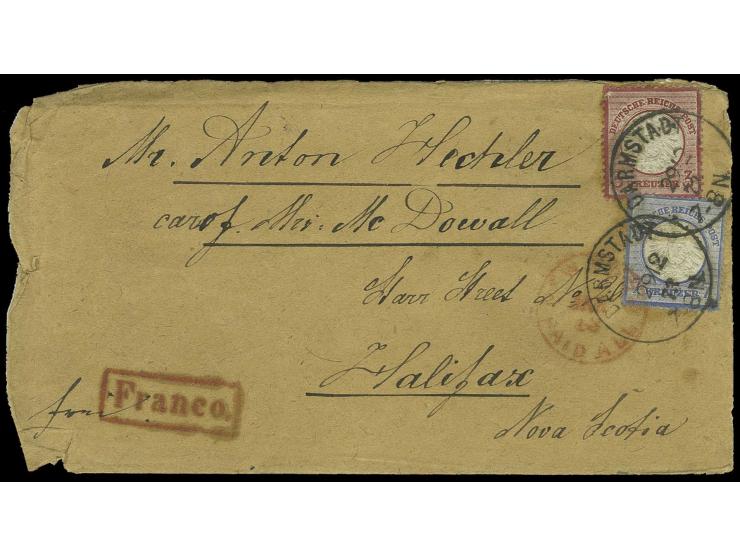 Mr. Anton Hechler
care of Mrs. Mc Dowall
Starr Street No
Halifax
Nova Scotia
frei
Franco.
PAID ALL
DEUTSCHE REICHS-POST
KREUZER
DARMSTADT
REICHS POST
KREUZER
DARMSTADT